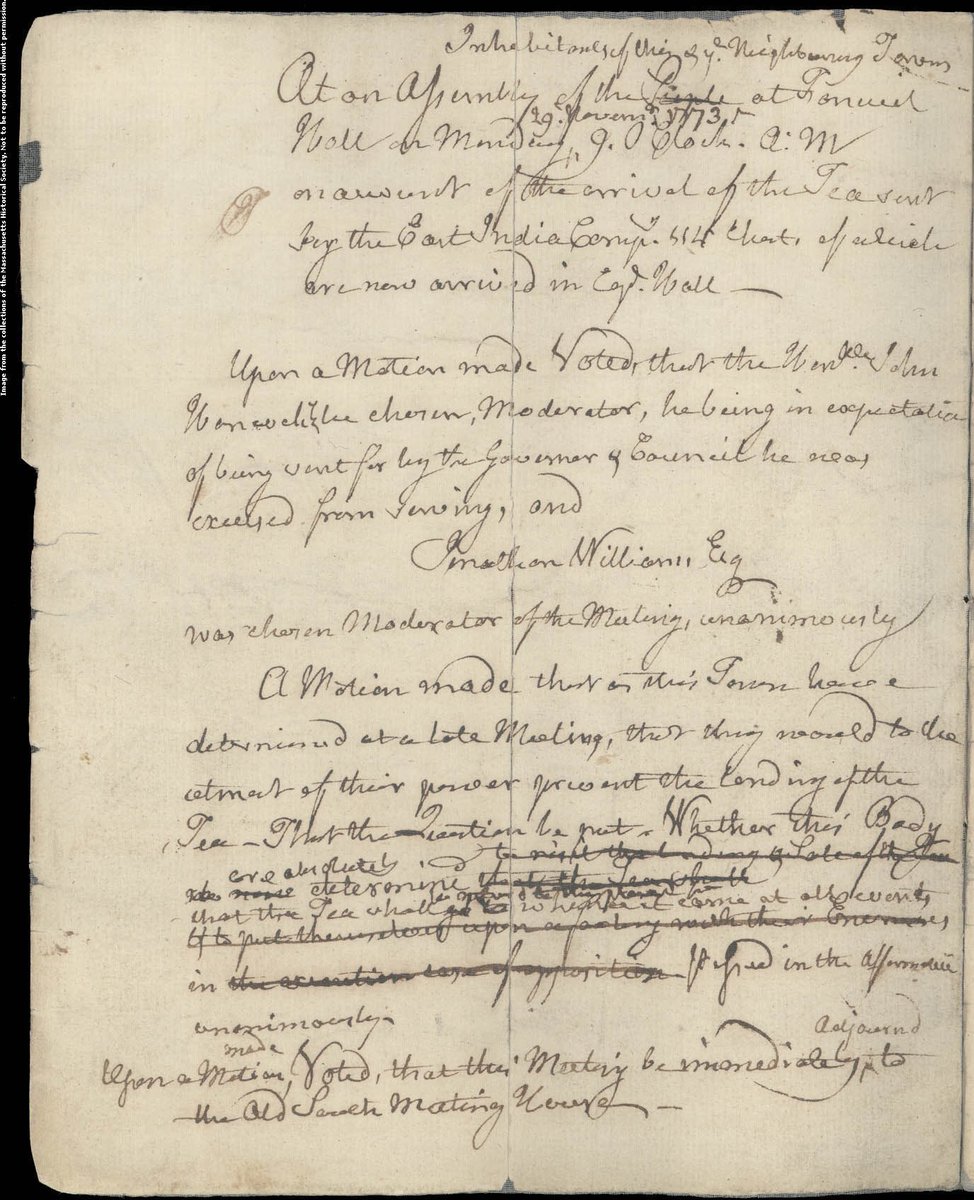 Image from the collections of the Massachusetts Historical Society. Not to be reproduced without permission.
Inhabitants of this & ye. Neighbouring Towns
At an Assembly of the People at Faneuil
29. Novemr. 1773,
Hall on Monday, 9. O Clock. A: M
on account of the arrival of the Tea sent
by the East India Compy. 114 Chests of which
are now arrived in
Upon a Motion made Voted, that the Honble. John
Hancock be chosen, Moderator, he being in expectation
of being sent for by the Governor & Council he was
excused from serving, and
Jonathan Williams, Esq
was chosen Moderator of the Meeting, unanimously
A Motion made that as this Town have
determined at a late Meeting, that they would to the
utmost of their power prevent the landing of the
Tea - That the Question be put - Whether this Body
to resist the landing & Sale of the Tea
are absolutely
now determine that the Tea shall
that the Tea shall whence it came at all events
& to put themselves upon a footing with their Enemies
in the execution case of opposition passed in the Affirmative
unanimously
made Adjournd
Upon a Motion, Voted, that this Meeting be immediately to
the Old South Meeting House